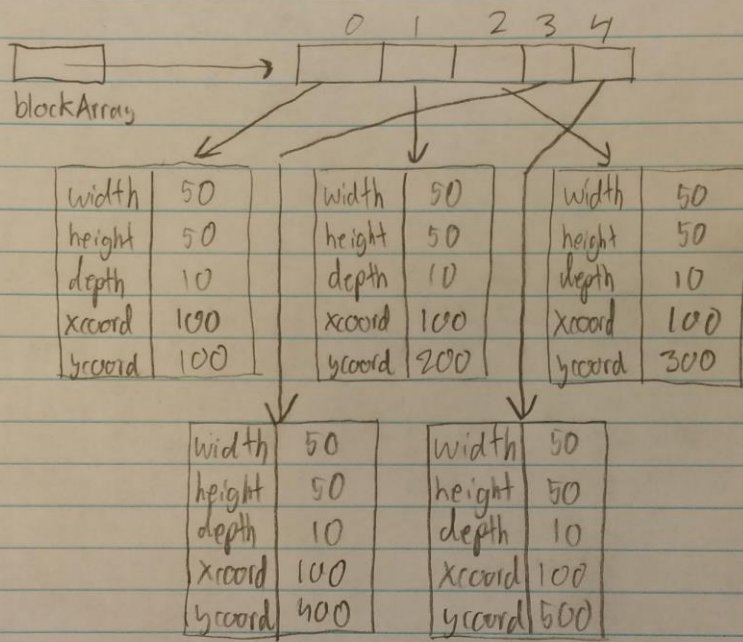 0 1 2 3 4
blockArray
width 50
height 50
depth 10
xcoord 100
ycoord 100
width 50
height 50
depth 10
xcoord 100
ycoord 200
width 50
height 50
depth 10
xcoord 100
ycoord 300
width 50
height 50
depth 10
xcoord 100
ycoord 400
width 50
height 50
depth 10
xcoord 100
ycoord 500